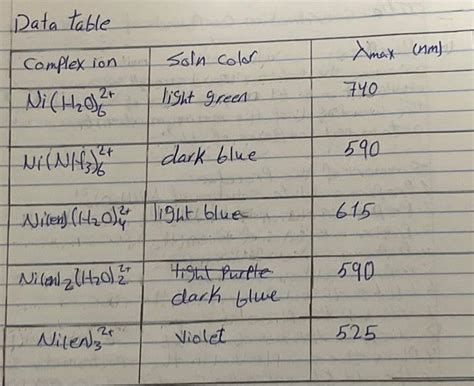 Data table
Complex ion | Soln color | λmax (nm)
Ni(H₂O)₆²⁺ | light green | 740
Ni(NH₃)₆²⁺ | dark blue | 590
Ni(en)(H₂O)₄²⁺ | light blue | 615
Ni(en)₂(H₂O)₂²⁺ | light purple | 590
dark blue
Ni(en)₃²⁺ | Violet | 525